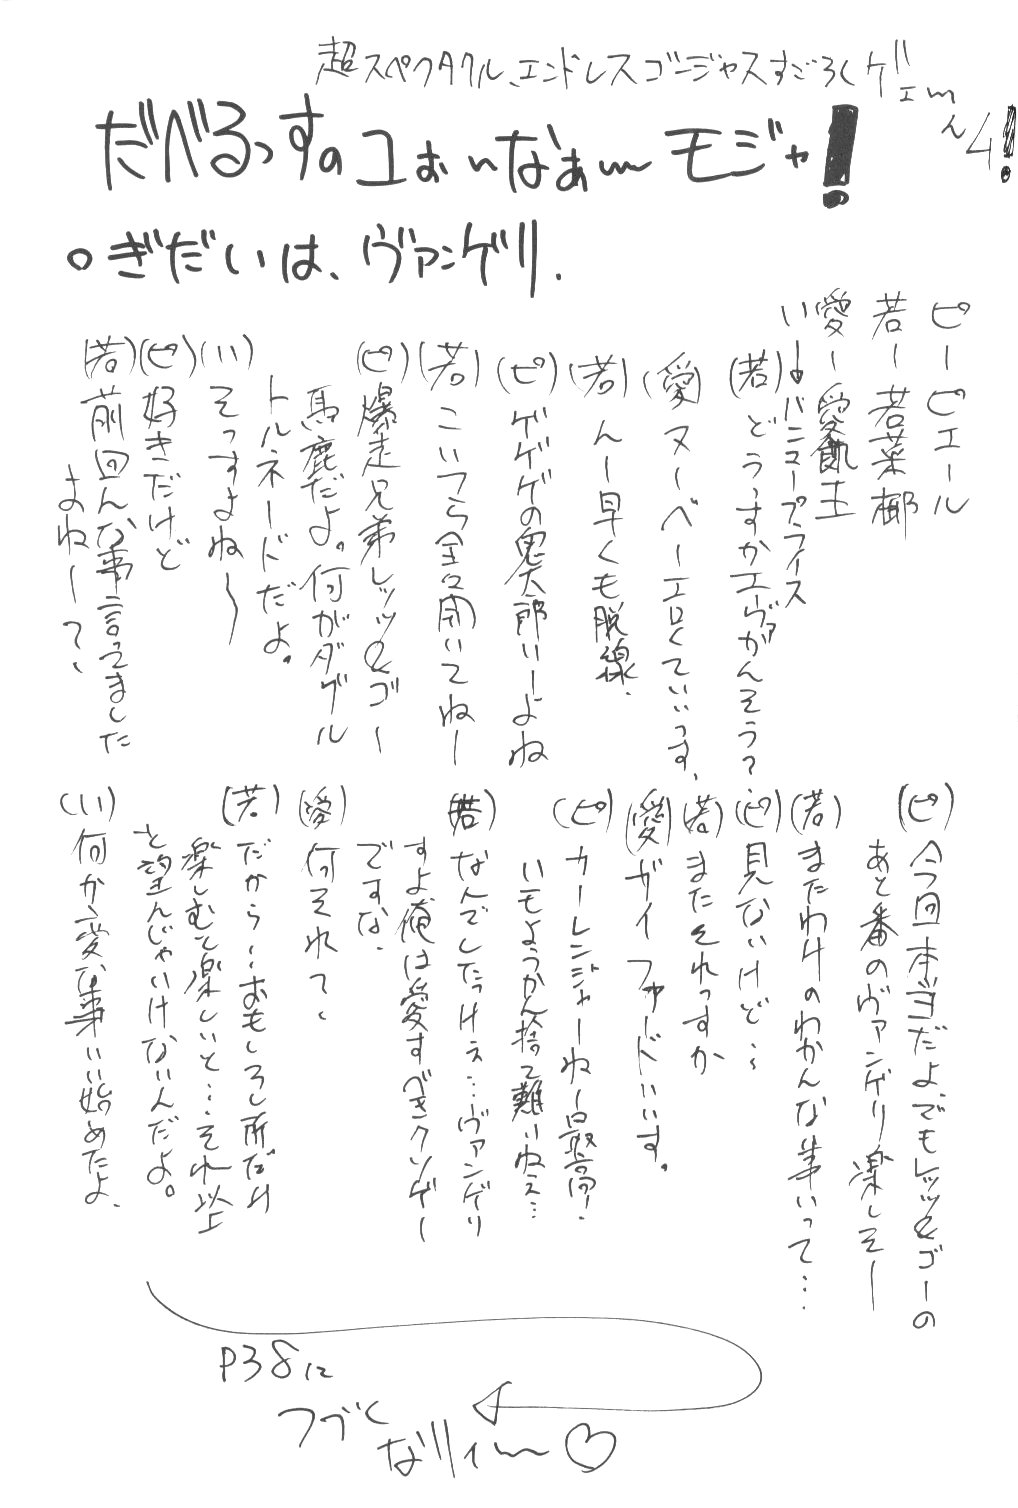 超スペクタクル、エンドレスゴージャスすごろくゲェーム 4!
だべるっすのコぉーなぁーモジャ!
○ぎだいは、ヴァンゲリ.
ピーピエール
若ー若菜椰
愛ー愛飢土
い→バニュープライス
(若)どうっすかエーヴァがんそう?
(愛)ヌーベーエロくていいっす、
(若)んー早くも脱線.
(ピ)ゲゲゲの鬼太郎いーよね
(若)こいつら全然聞いてねー
(ピ)爆走兄弟レッツ&ゴー
馬鹿だよ。何がダブル
トルネードだよ。
(い)そっすよね〜
(ピ)好きだけど
(若)前回んな事言ってました
よねーて、
(ピ)今回本当だよ、でもレッツ&ゴーの
あと番のヴァンゲリ楽しそー
(若)またわけのわかんな事いって…
(ピ)見ないけど…
(若)またそれっすか
(愛)ガイファードいいす。
(ピ)カーレンジャーねー最高!
いもようかん捨て難いねぇ…
(若)なんでしたっけぇ…ヴァンゲリ
すよ俺は愛すべきクソゲー
ですな.
(愛)何それて、
(若)だから〜おもしろし所だけ
楽しむと楽しいと…それ以上
を望んじゃいけないんだよ。
(い)何か変な事いい始めたよ、
P38に
つづく
なりィー♡